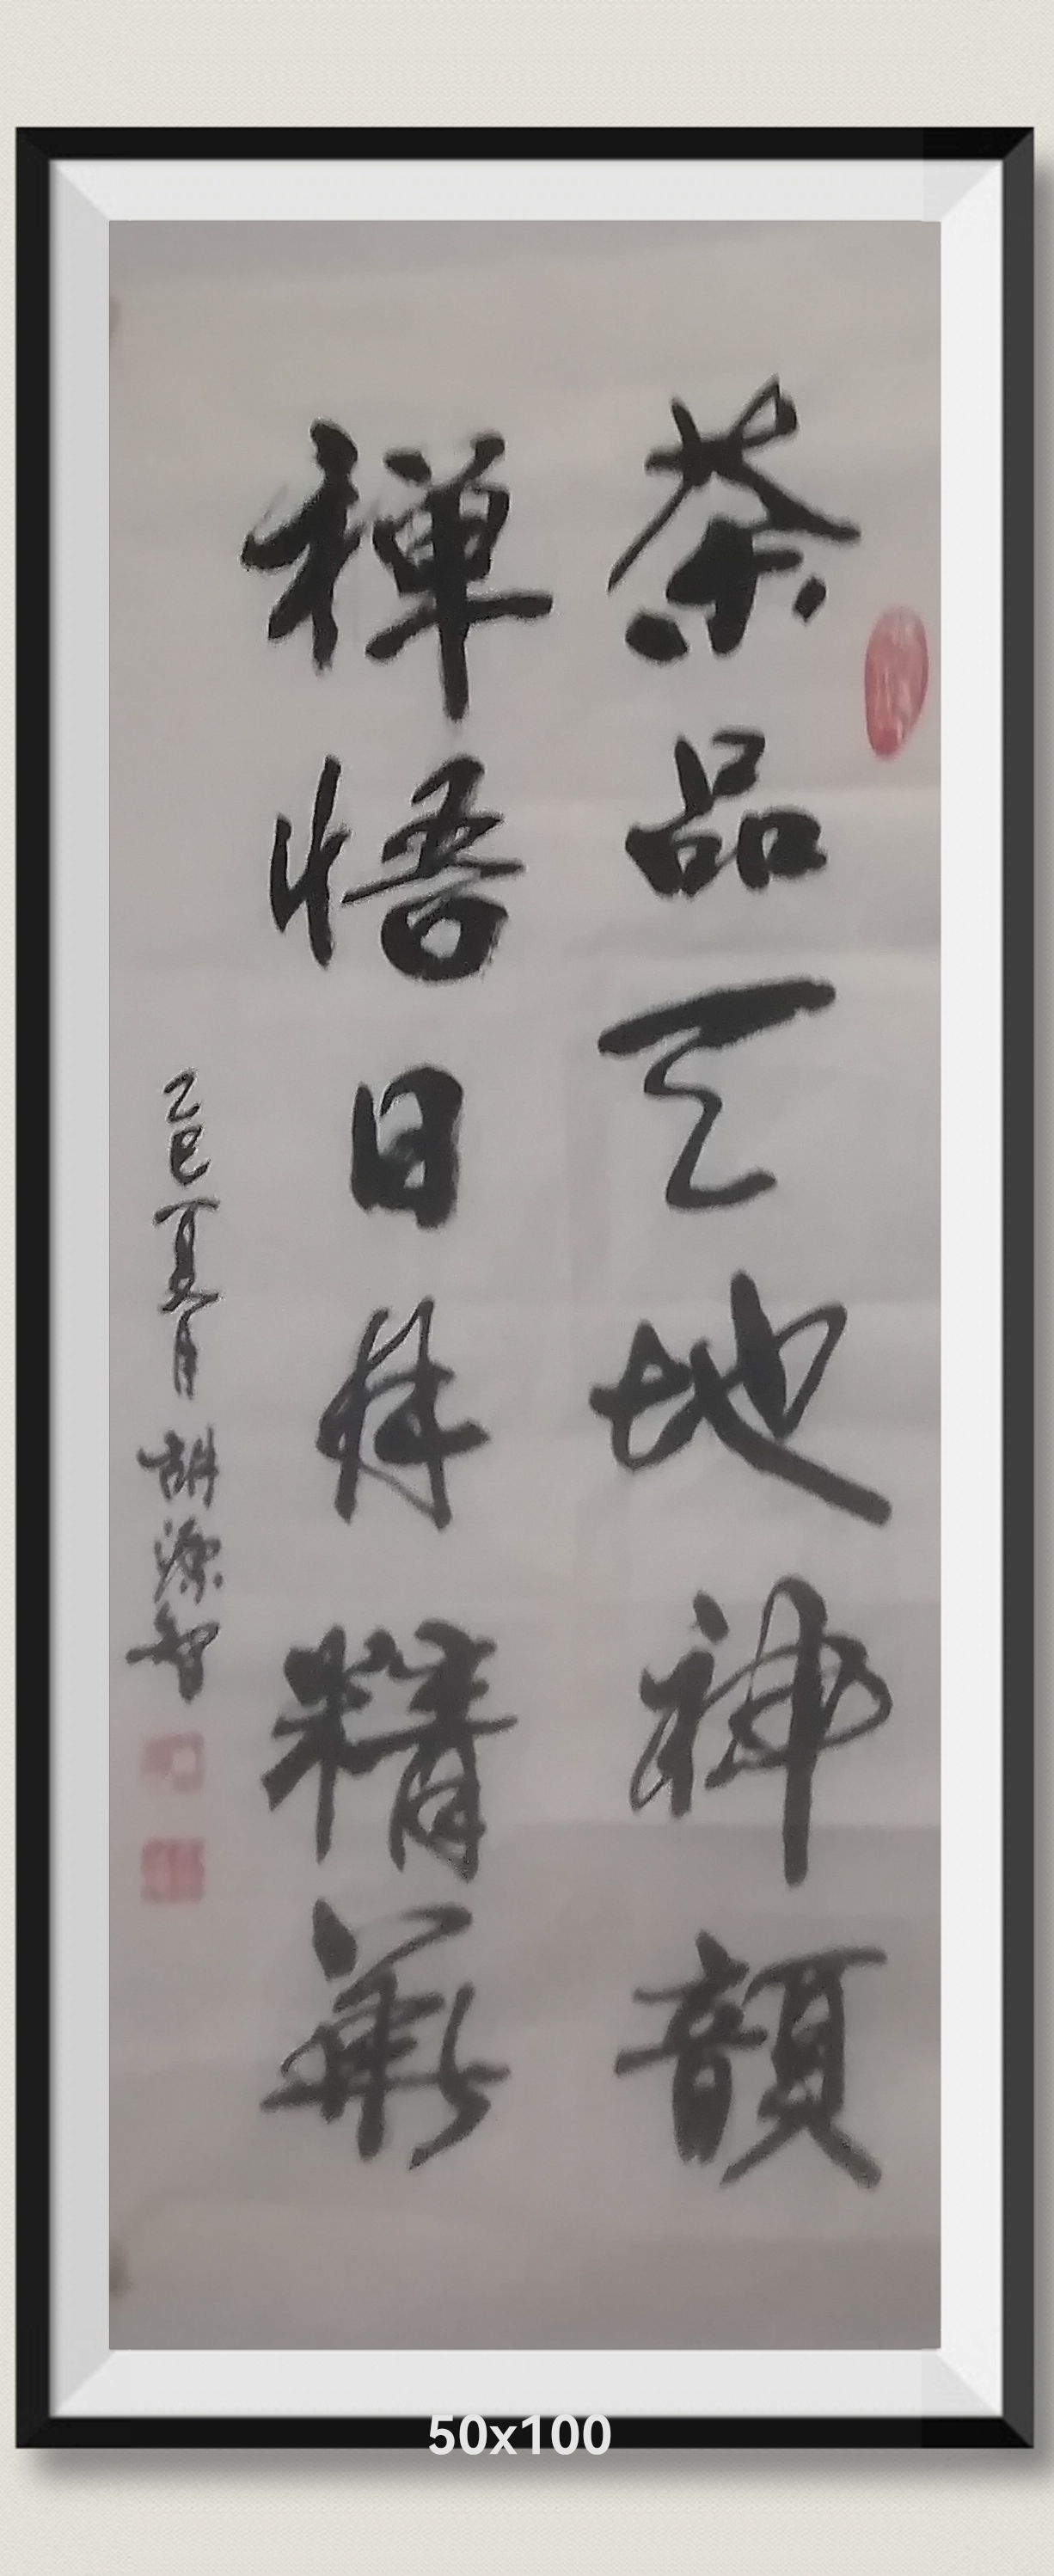 茶品天地神韻
禅悟日月精華
乙巳夏月 胡源智
50x100